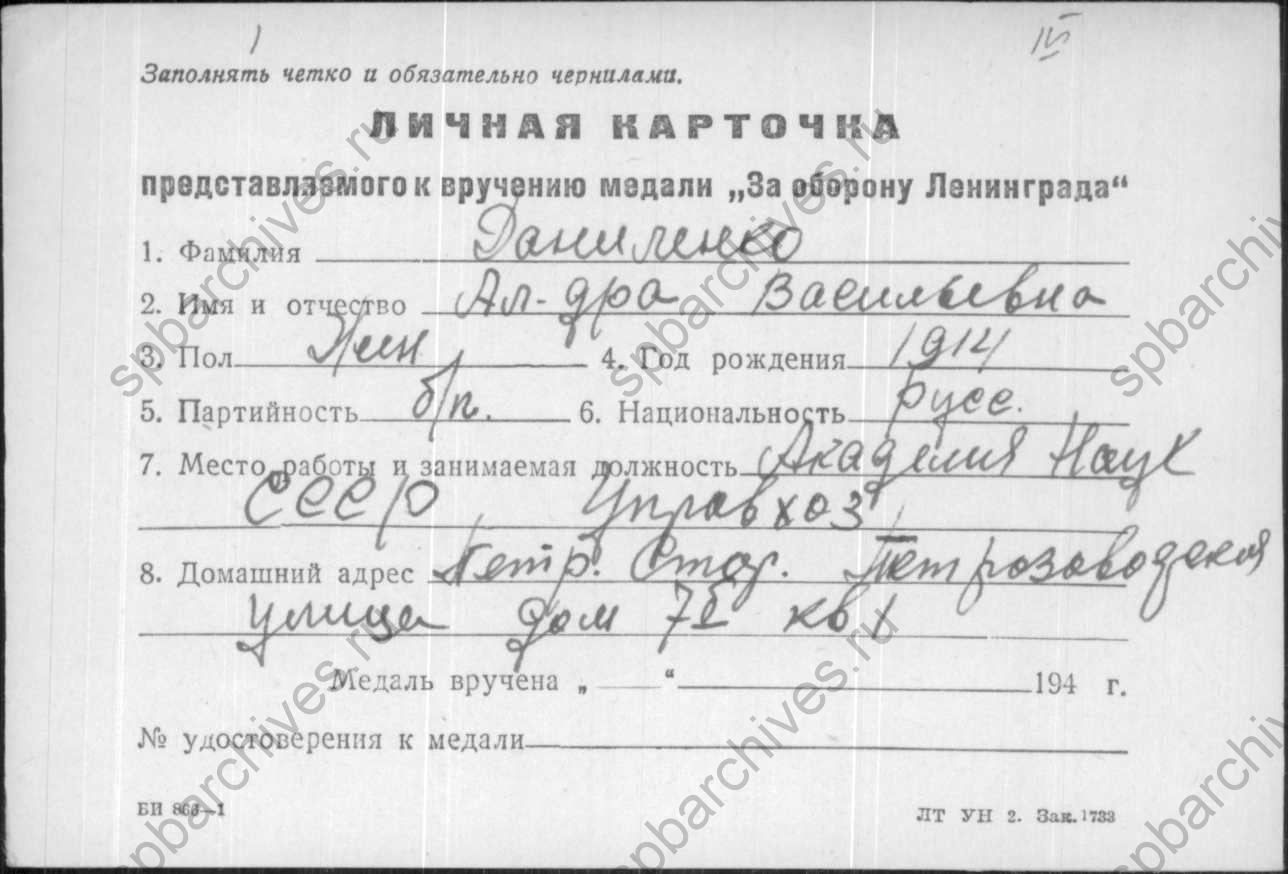 1 IV
Заполнять четко и обязательно чернилами.
ЛИЧНАЯ КАРТОЧКА
представляемого к вручению медали „За оборону Ленинграда“
1. Фамилия Даниленко
2. Имя и отчество Ал-дра Васильевна
3. Пол Жен 4. Год рождения 1914
5. Партийность б/п. 6. Национальность русс.
7. Место работы и занимаемая должность Академия Наук
СССР Управхоз
8. Домашний адрес Петр. Стор. Петрозаводская
улица дом кв 1
Медаль вручена „ “ 194 г.
№ удостоверения к медали
БИ 866—1
ЛТ УН 2. Зак. 1733
spbarchives.ru